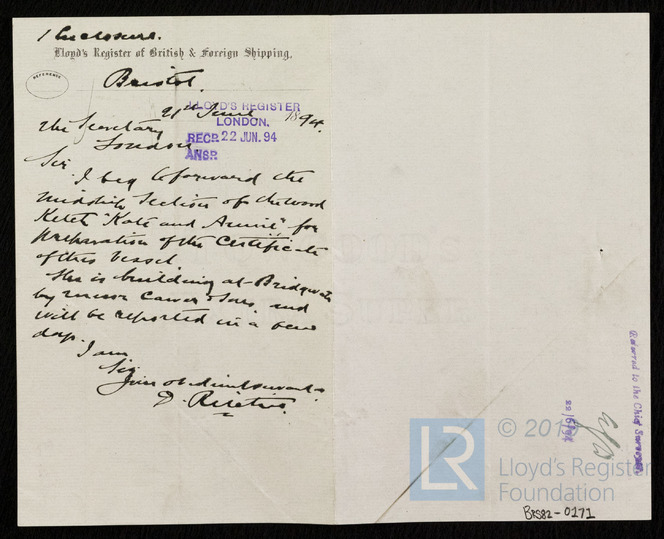 1 Enclosure.
Lloyd's Register of British & Foreign Shipping,
REFERENCE
Bristol.
21st June 1894.
LLOYD'S REGISTER
LONDON.
RECD. 22 JUN. 94
ANSR.
The Secretary
London
Sir
I beg to forward the
midship Section of the wood
Ketch "Kate and Annie" for
preparation of the Certificate
of this vessel
She is building at Bridgwater
by Messrs Carver & Sons, and
will be reported in a few
days.
I am
Sir
Your obedient servant
D.
Referred to the Chief Surveyor
© 201
Lloyd's Register
Foundation
LR
BRS82-0171